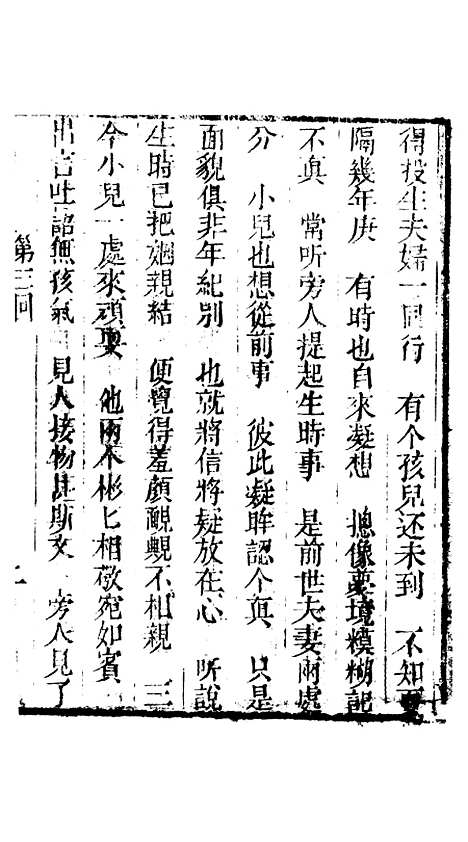 得投生夫婦一同行　有个孩兒还未到　不知要
隔幾年庚　有時也自來凝想　摠像夢境糢糊記
不真　常听旁人提起生時事　是前世夫妻兩處
分　小兒也想從前事　彼此凝眸認个真　只是
面貌俱非年紀别　也就將信將疑放在心　听說
生時已把姻親結　便覺得羞顏靦覥不相親　三
今小兒一處來頑耍　他兩个彬匕相敬宛如賓
出言吐語無孩氣　見人接物甚斯文　旁人見了
第三回　二